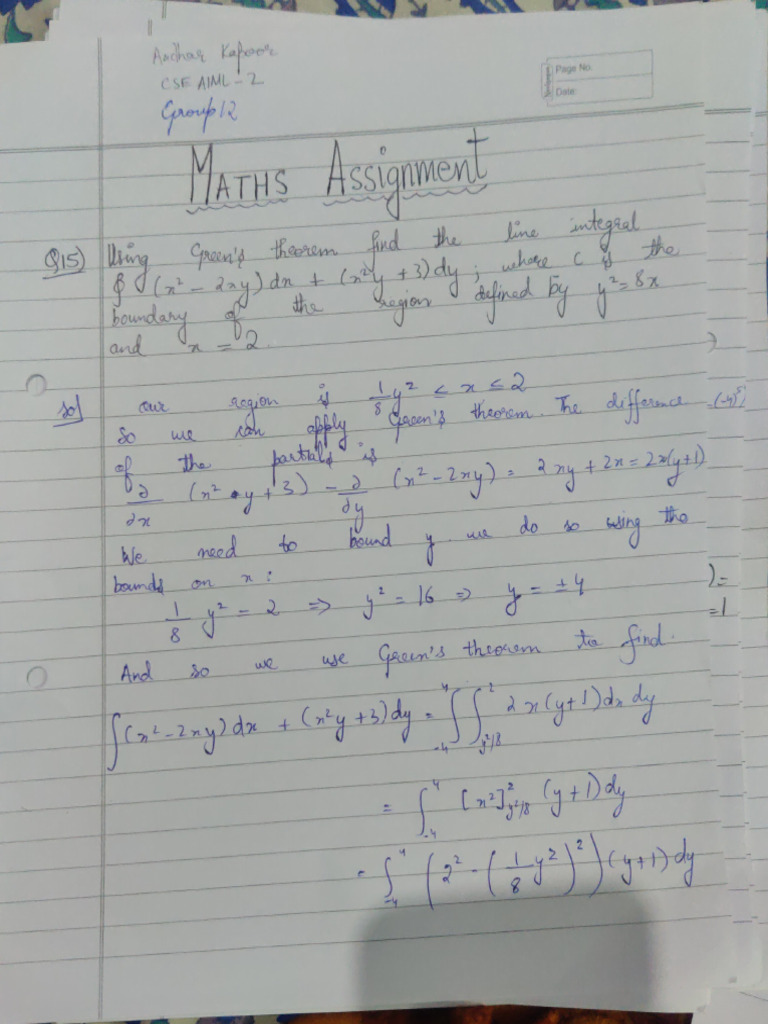 Kapoor
CSE AIML - 2
Group 12
Page No.
Date:
MATHS Assignment
Q15) Using Green's theorem find the line integral
∮ (x² - 2xy) dx + (x²y + 3) dy ; where C is the
boundary of the region defined by y² = 8x
and x = 2.
sol our region is 1/8 y² ≤ x ≤ 2
So we can apply Green's theorem. The difference
of the partials is
∂/∂x (x² y + 3) - ∂/∂y (x² - 2xy) = 2xy + 2x = 2x(y+1)
We need to bound y we do so using the
bounds on x :
1/8 y² = 2 ⇒ y² = 16 ⇒ y = ±4
And so we use Green's theorem to find.
∫(x² - 2xy) dx + (x²y + 3) dy = ∫₋₄⁴ ∫_{y²/8}^2 2x(y+1) dx dy
= ∫₋₄⁴ [x²]_{y²/8}^2 (y+1) dy
= ∫₋₄⁴ (2² - (1/8 y²)²) (y+1) dy